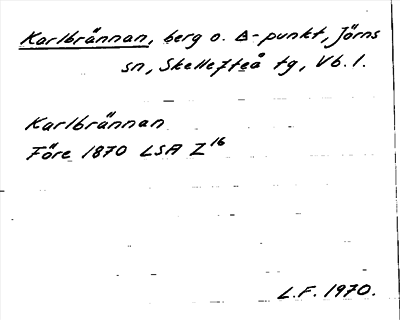 Karlbrännan, berg o. Δ-punkt, Jörns
sn, Skellefteå tg, Vb. l.
Karlbrännan
Före 1870 LSA Z16
L.F. 1970.